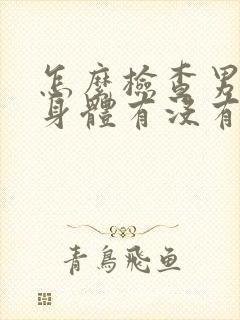 怎麼檢查男
身體有沒有
青鳥飛魚